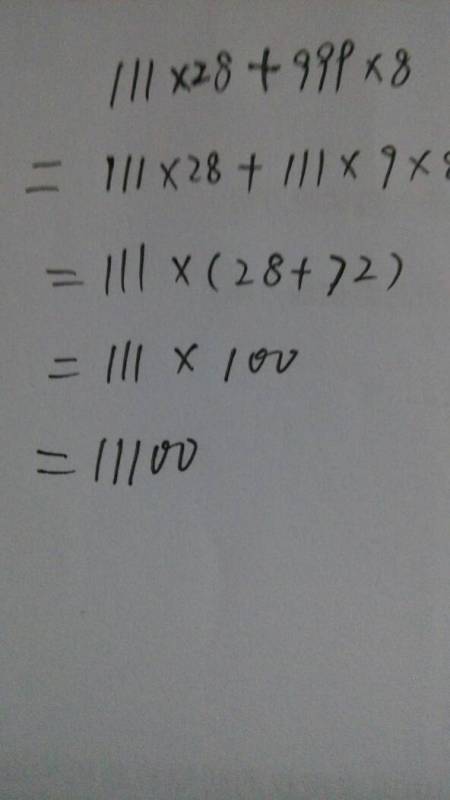 111×28+999×8
=111×28+111×9×8
=111×(28+72)
=111×100
=11100